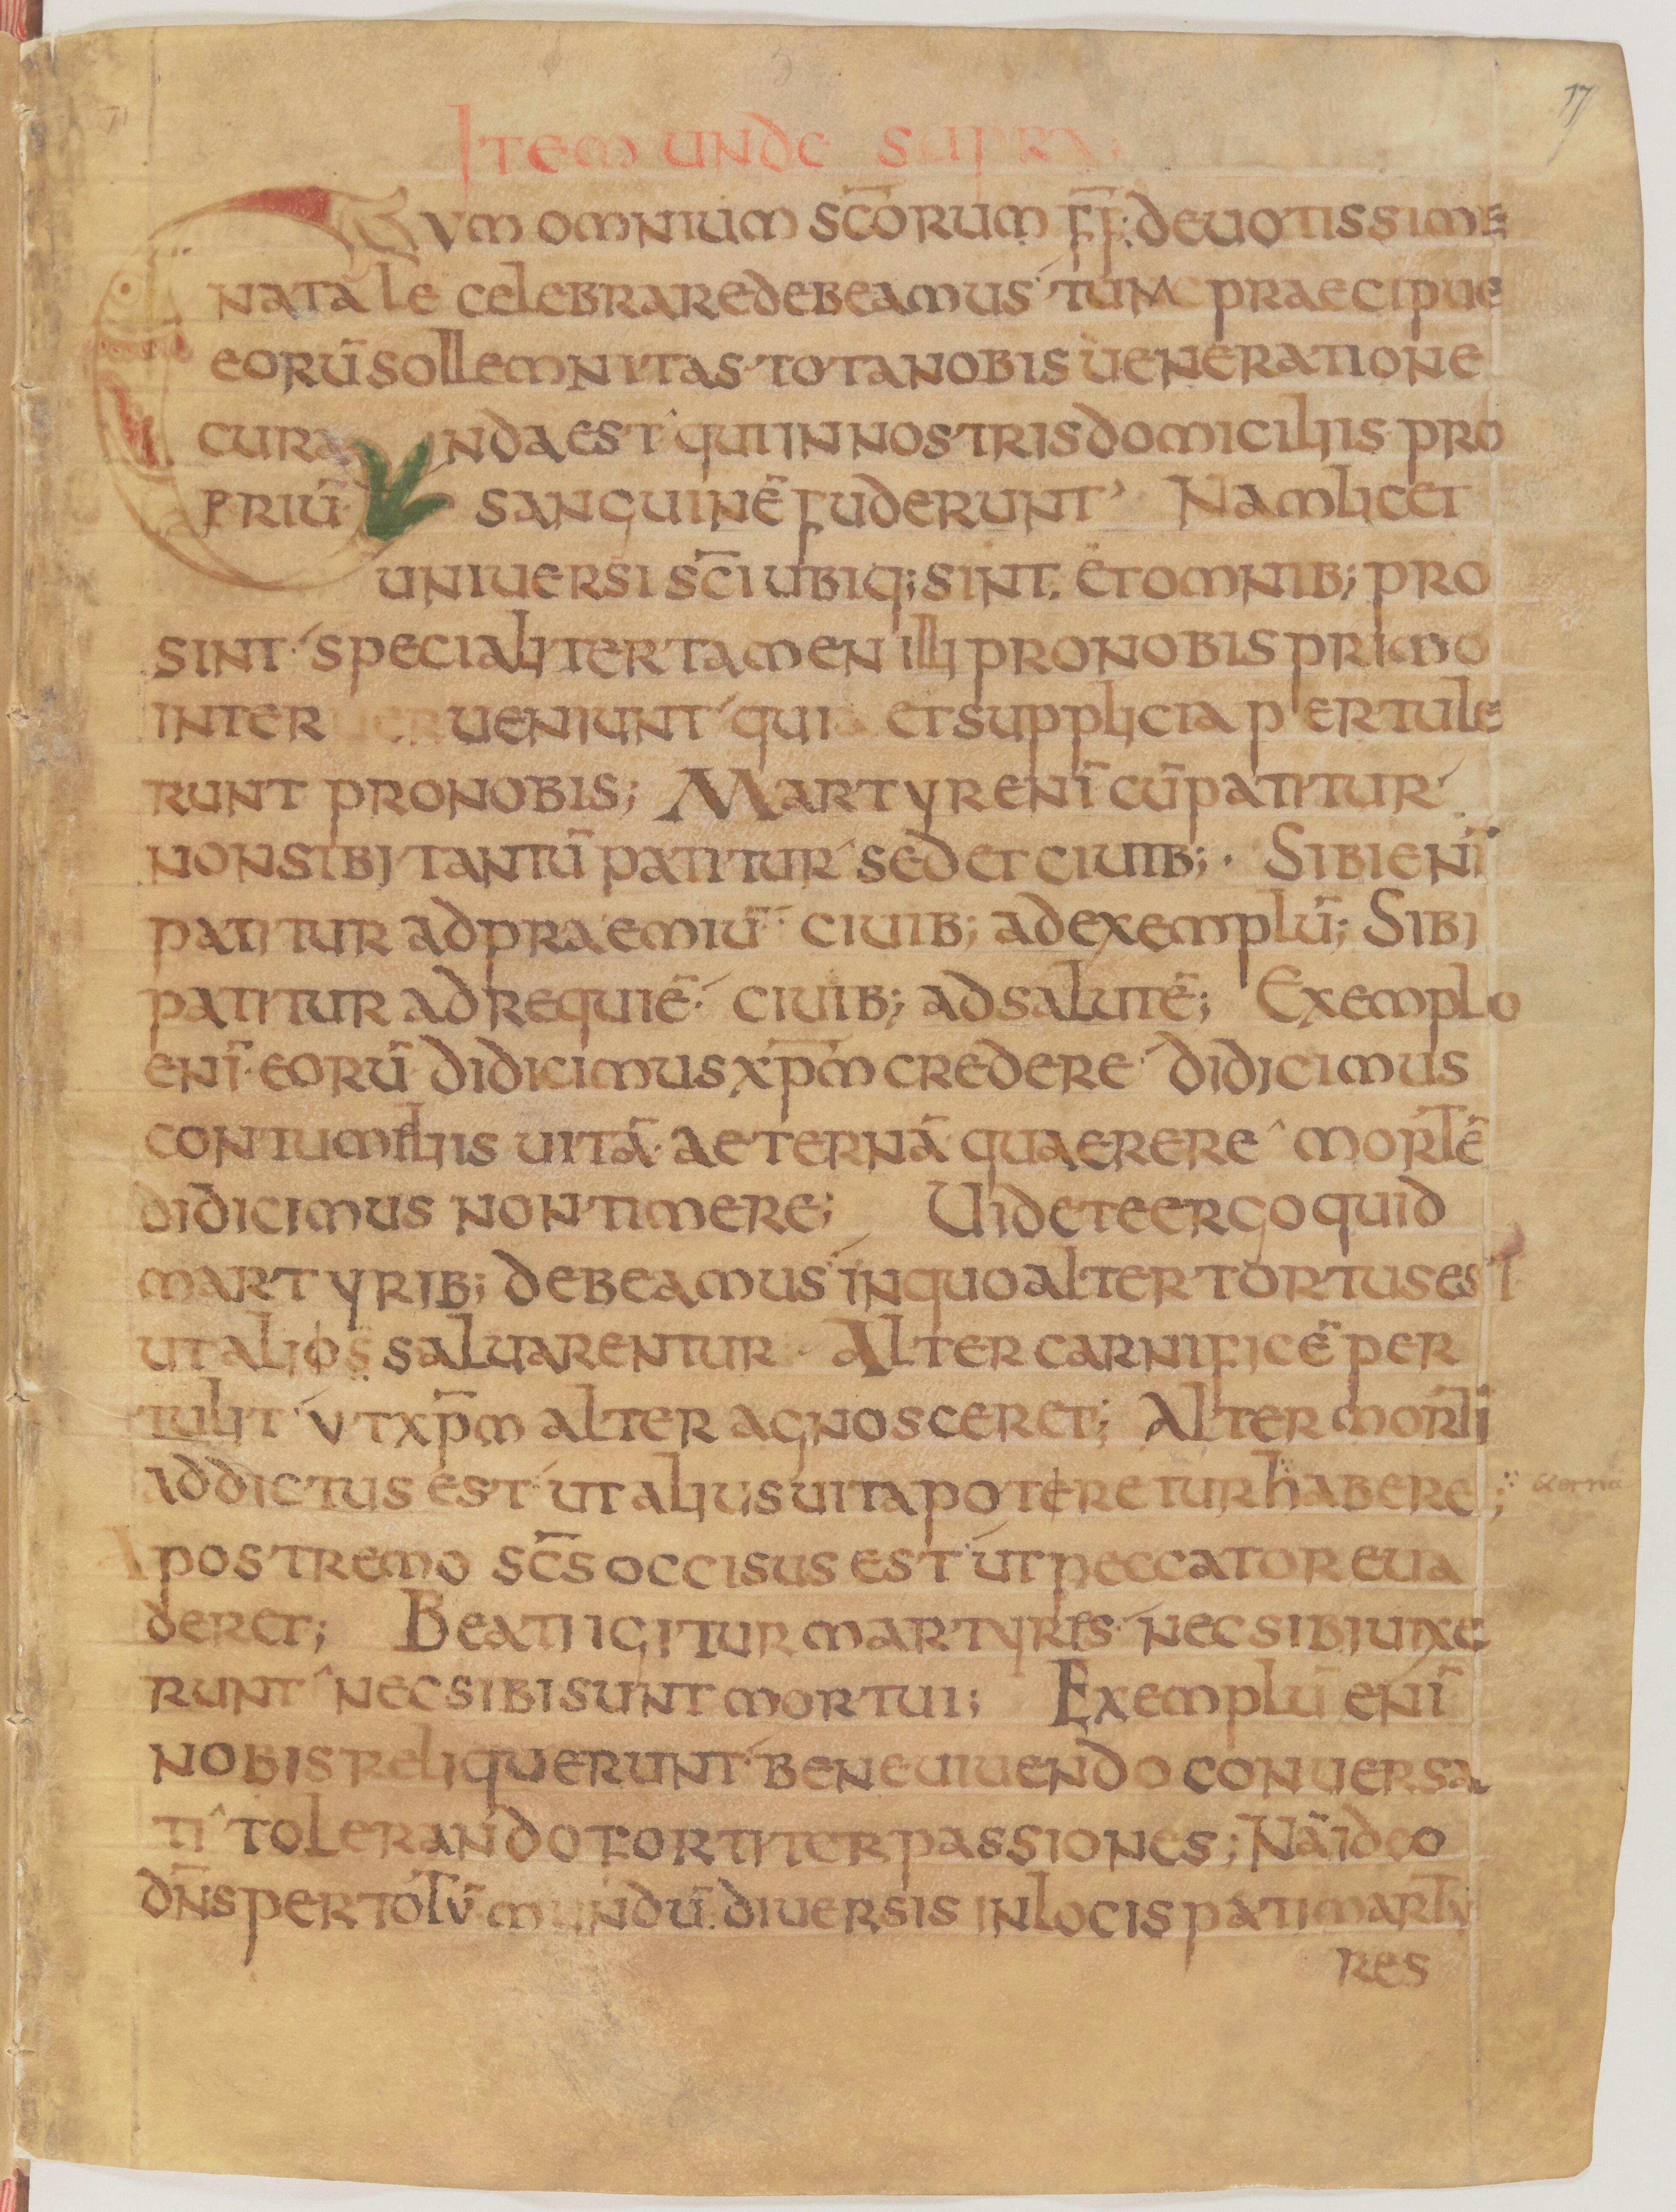 17
Item unde supra;
CVm omnium sc̄orum f̄f̄; deuotissime
natale celebrare debeamus tunc praecipue
eorū sollemnitas tota nobis ueneratione
curanda est qui in nostris domiciliis pro
priū sanguinē fuderunt Nam licet
uniuersi sc̄i ubiq; sint. et omnib; pro
sint specialiter tamen illi pro nobis primo
interueniunt qui et supplicia pertule
runt pro nobis; Martyr enī cū patitur
non sibi tantū patitur sed et ciuib;. Sibi enī
patitur ad praemiū ciuib; ad exemplū; Sibi
patitur ad requiē. ciuib; ad salutē; Exemplo
enī eorū didicimus xp̄m credere didicimus
contumeliis uitā aeternā quaerere mortē
didicimus non timere; Uidete ergo quid
martyrib; debeamus in quo alter tortus est
ut alios saluarentur. Alter carnificē per
tulit ut xp̄m alter agnosceret; Alter morti
addictus est ut alius uita poteretur habere; eterna
postremo sc̄s occisus est ut peccator eua
deret; Beati igitur martyres nec sibi uixe
runt nec sibi sunt mortui; Exemplū enī
nobis reliquerunt bene uiuendo conuersa
ti tolerando fortiter passiones; Nā ideo
dn̄s per totū mundū diuersis in locis pati marty
res